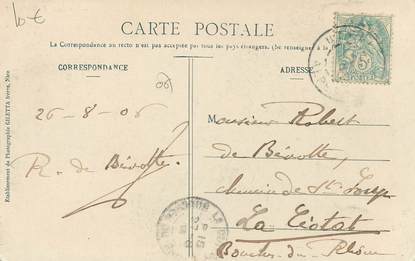 6€
CARTE POSTALE
La Correspondance au recto n'est pas acceptée par tous les pays étrangers. (Se renseigner
CORRESPONDANCE
ADRESSE
06
26-8-06
R. de Bévotte.
Monsieur Robert
de Bévotte,
chemin de St Joseph
La Ciotat
Bouches-du-Rhône
Etablissement de Photographie GILETTA frères, Nice
5c